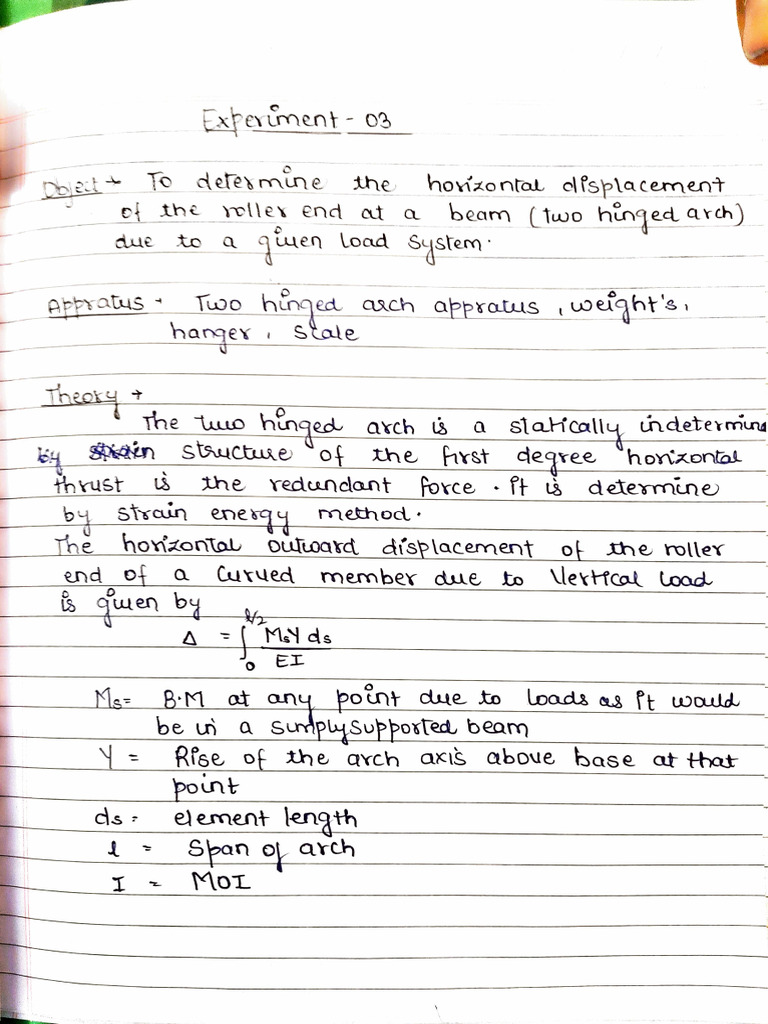 Experiment - 03
Object → To determine the horizontal displacement
of the roller end at a beam (two hinged arch)
due to a given load system.
Appratus → Two hinged arch appratus, weight's,
hanger, scale
Theory →
The two hinged arch is a statically indetermine
by structure of the first degree horizontal
thrust is the redundant force. It is determine
by strain energy method.
The horizontal outward displacement of the roller
end of a curved member due to vertical load
is given by
Δ = ∫₀^{l/2} MsY ds / EI
Ms = B.M at any point due to loads as it would
be in a simply supported beam
Y = Rise of the arch axis above base at that
point
ds = element length
l = Span of arch
I = MOI